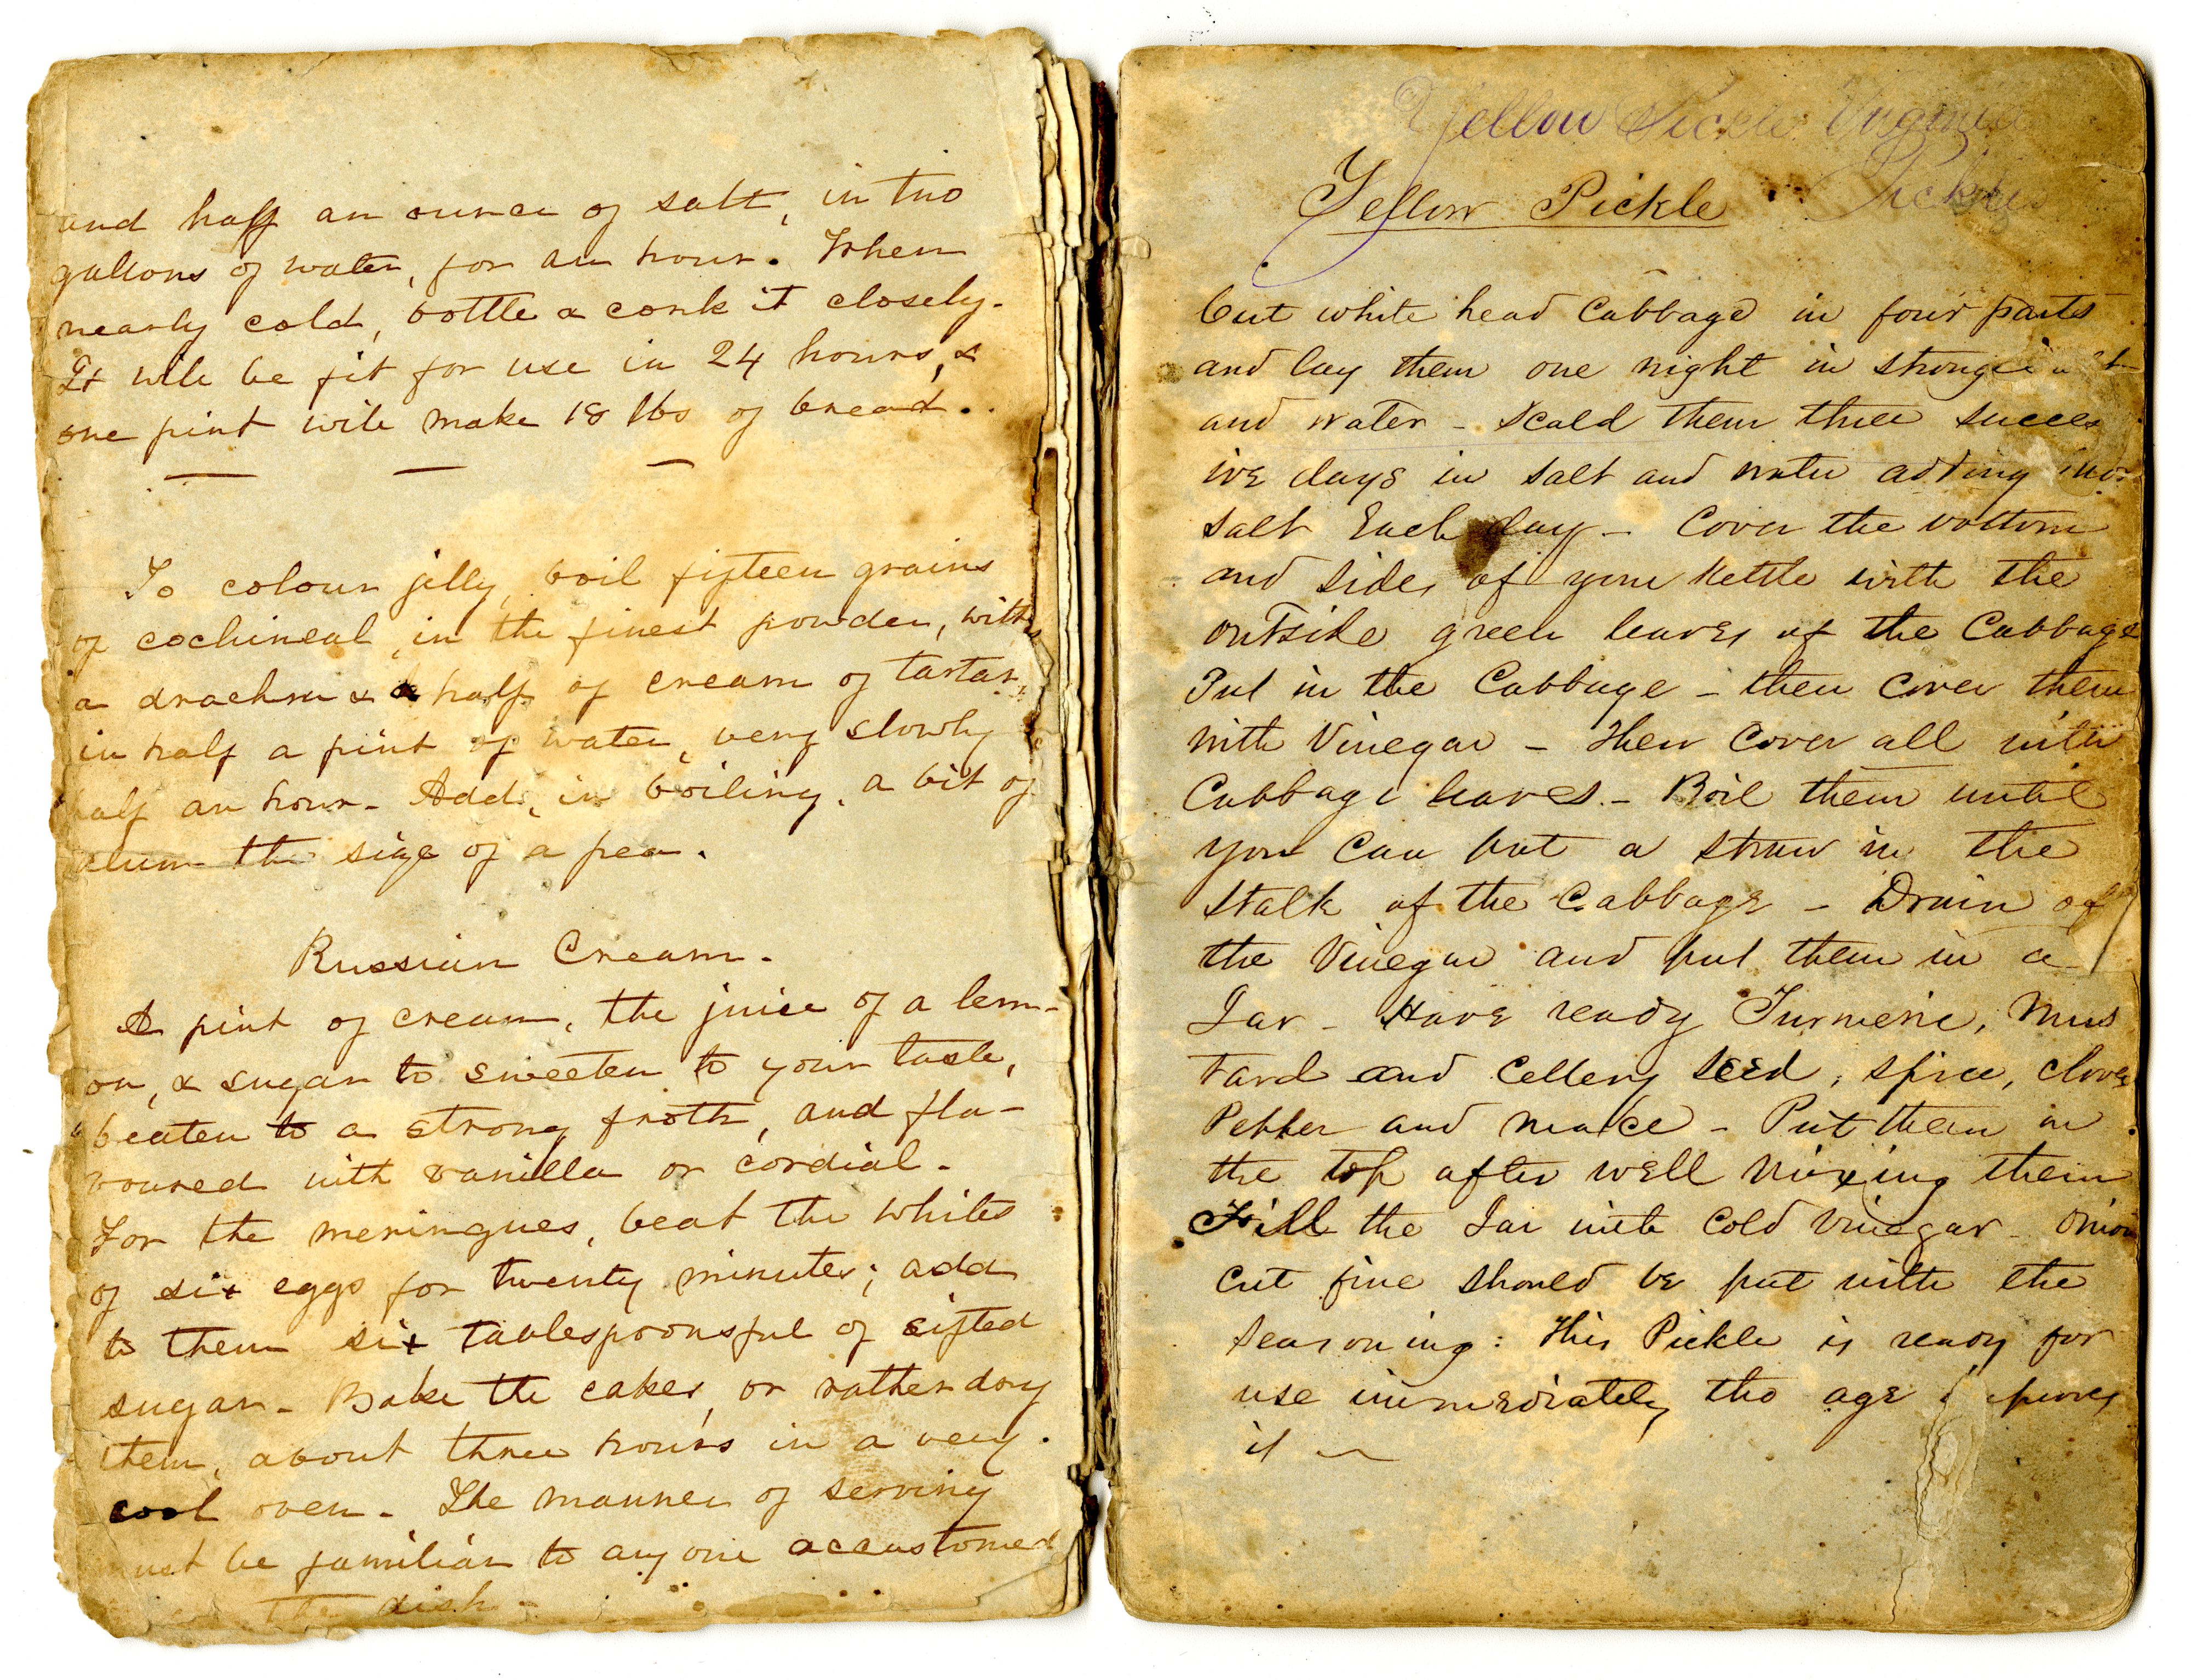 and half an ounce of salt, in two
gallons of water, for an hour. When
nearly cold, bottle & cork it closely.
It will be fit for use in 24 hours, &
one pint will make 18 lbs of bread.
To colour jelly, boil fifteen grains
of cochineal, in the finest powder, with
a drachm & a half of cream of tartar,
in half a pint of water, very slowly
half an hour - Add, in boiling, a bit of
alum the size of a pea.
Russian Cream.
A pint of cream, the juice of a lem-
on, & sugar to sweeten to your taste,
beaten to a strong froth, and fla-
voured with vanilla or cordial.
For the meringues, beat the whites
of six eggs for twenty minutes; add
to them six tablespoonsful of sifted
sugar - Bake the cakes, or rather dry
them, about three hours in a very
cool oven - The manner of serving
must be familiar to any one accustomed
the dish -
Yellow Pickle Virginia
Pickle
Yellow Pickle
Cut white head Cabbage in four parts
and lay them one night in strong
and water - Scald them three success
ive days in salt and water adding mor
salt Each day - Cover the bottom
and sides of your kettle with the
outside green leaves of the Cabbage
Put in the Cabbage - then Cover them
with Vinegar - then Cover all with
Cabbage leaves - Boil them until
you Can put a straw in the
Stalk of the Cabbage - Drain off
the Vinegar and put them in a
Jar - Have ready Turmeric, Mus
tard and Cellery Seed, Spice, cloves
Pepper and mace - Put them in
the top after well mixing them
Fill the Jar with Cold Vinegar - Onion
Cut fine should be put with the
seasoning: this Pickle is ready for
use immediately tho age
it